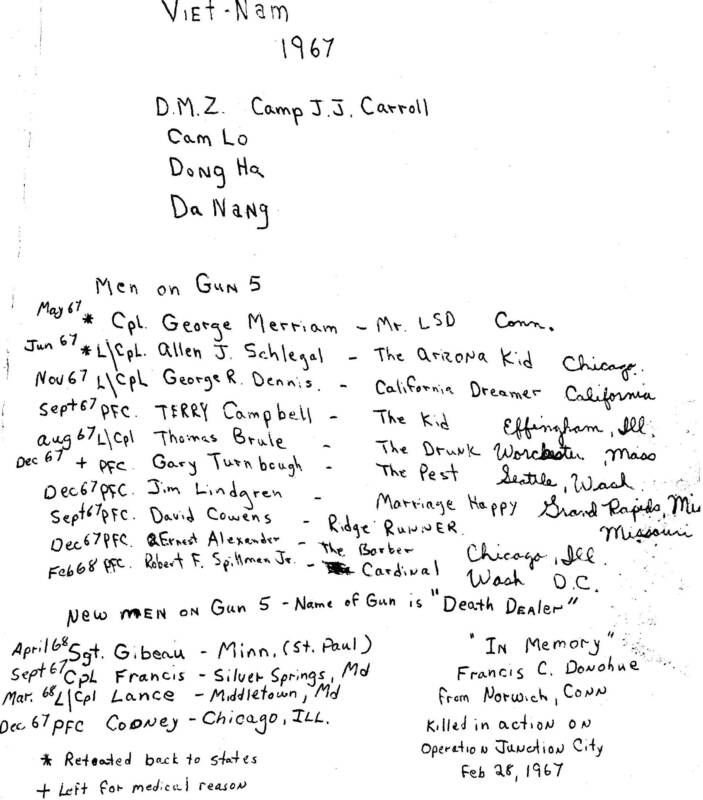 VIEt-Nam
1967
D.M.Z. Camp J.J. Carroll
Cam Lo
Dong Ha
Da Nang
Men on Gun 5
May 67 * Cpl. George Merriam - Mr. LSD Conn.
Jun 67 * L\Cpl. Allen J. Schlegal - The Arizona Kid Chicago.
Nov 67 L\Cpl George R. Dennis. - California Dreamer California
Sept 67 PFC. TERRY Campbell - The Kid Effingham, Ill.
aug 67 L\Cpl Thomas Brule - The Drunk Worchester, Mass
Dec 67 + PFC. Gary Turnbough - The Pest Seattle, Wash
Dec 67 PFC. Jim Lindgren - Marriage Happy Grand Rapids, Mi
Sept 67 PFC. David Cowens - Ridge RUNNER. Missouri
Dec 67 PFC. Ernest Alexander - The Barber Chicago, Ill.
Feb 68 PFC. Robert F. Spillman Jr. - Cardinal Wash D.C.
New MEN ON Gun 5 - Name of Gun is "Death Dealer"
April 68 Sgt. Gibeau - Minn. (St. Paul)
Sept 67 Cpl Francis - Silver Springs, Md
Mar. 68 L\Cpl Lance - Middletown, Md
Dec 67 PFC Cooney - Chicago, ILL.
* Roteated back to states
+ Left for medical reason
"In Memory"
Francis C. Donohue
from Norwich, CONN
Killed in action on
Operation Junction City
Feb 28, 1967